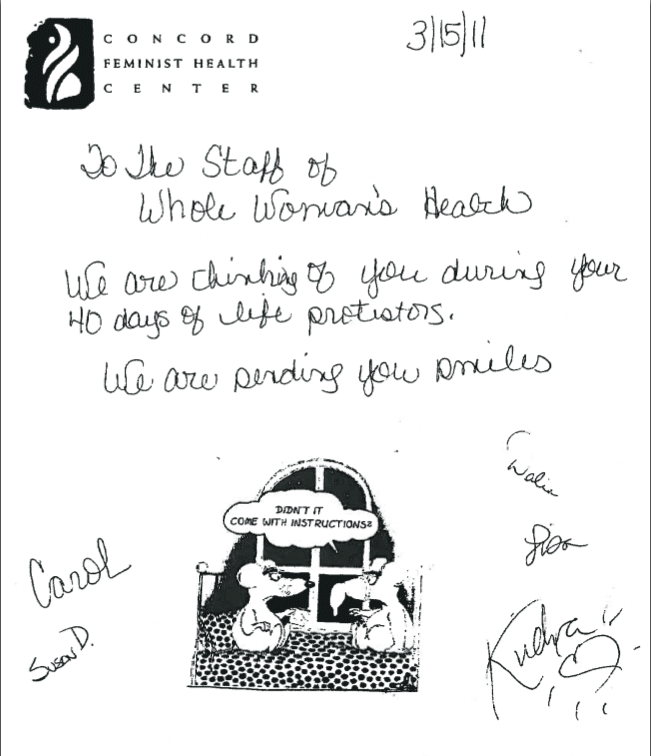 CONCORD
FEMINIST HEALTH
CENTER
3/15/11
To The Staff of
Whole Woman's Health
We are thinking of you during your
40 days of life protistors.
We are sending you smiles
DIDN'T IT
COME WITH INSTRUCTIONS?
Dalia
Lisa
Carol
Susan D.